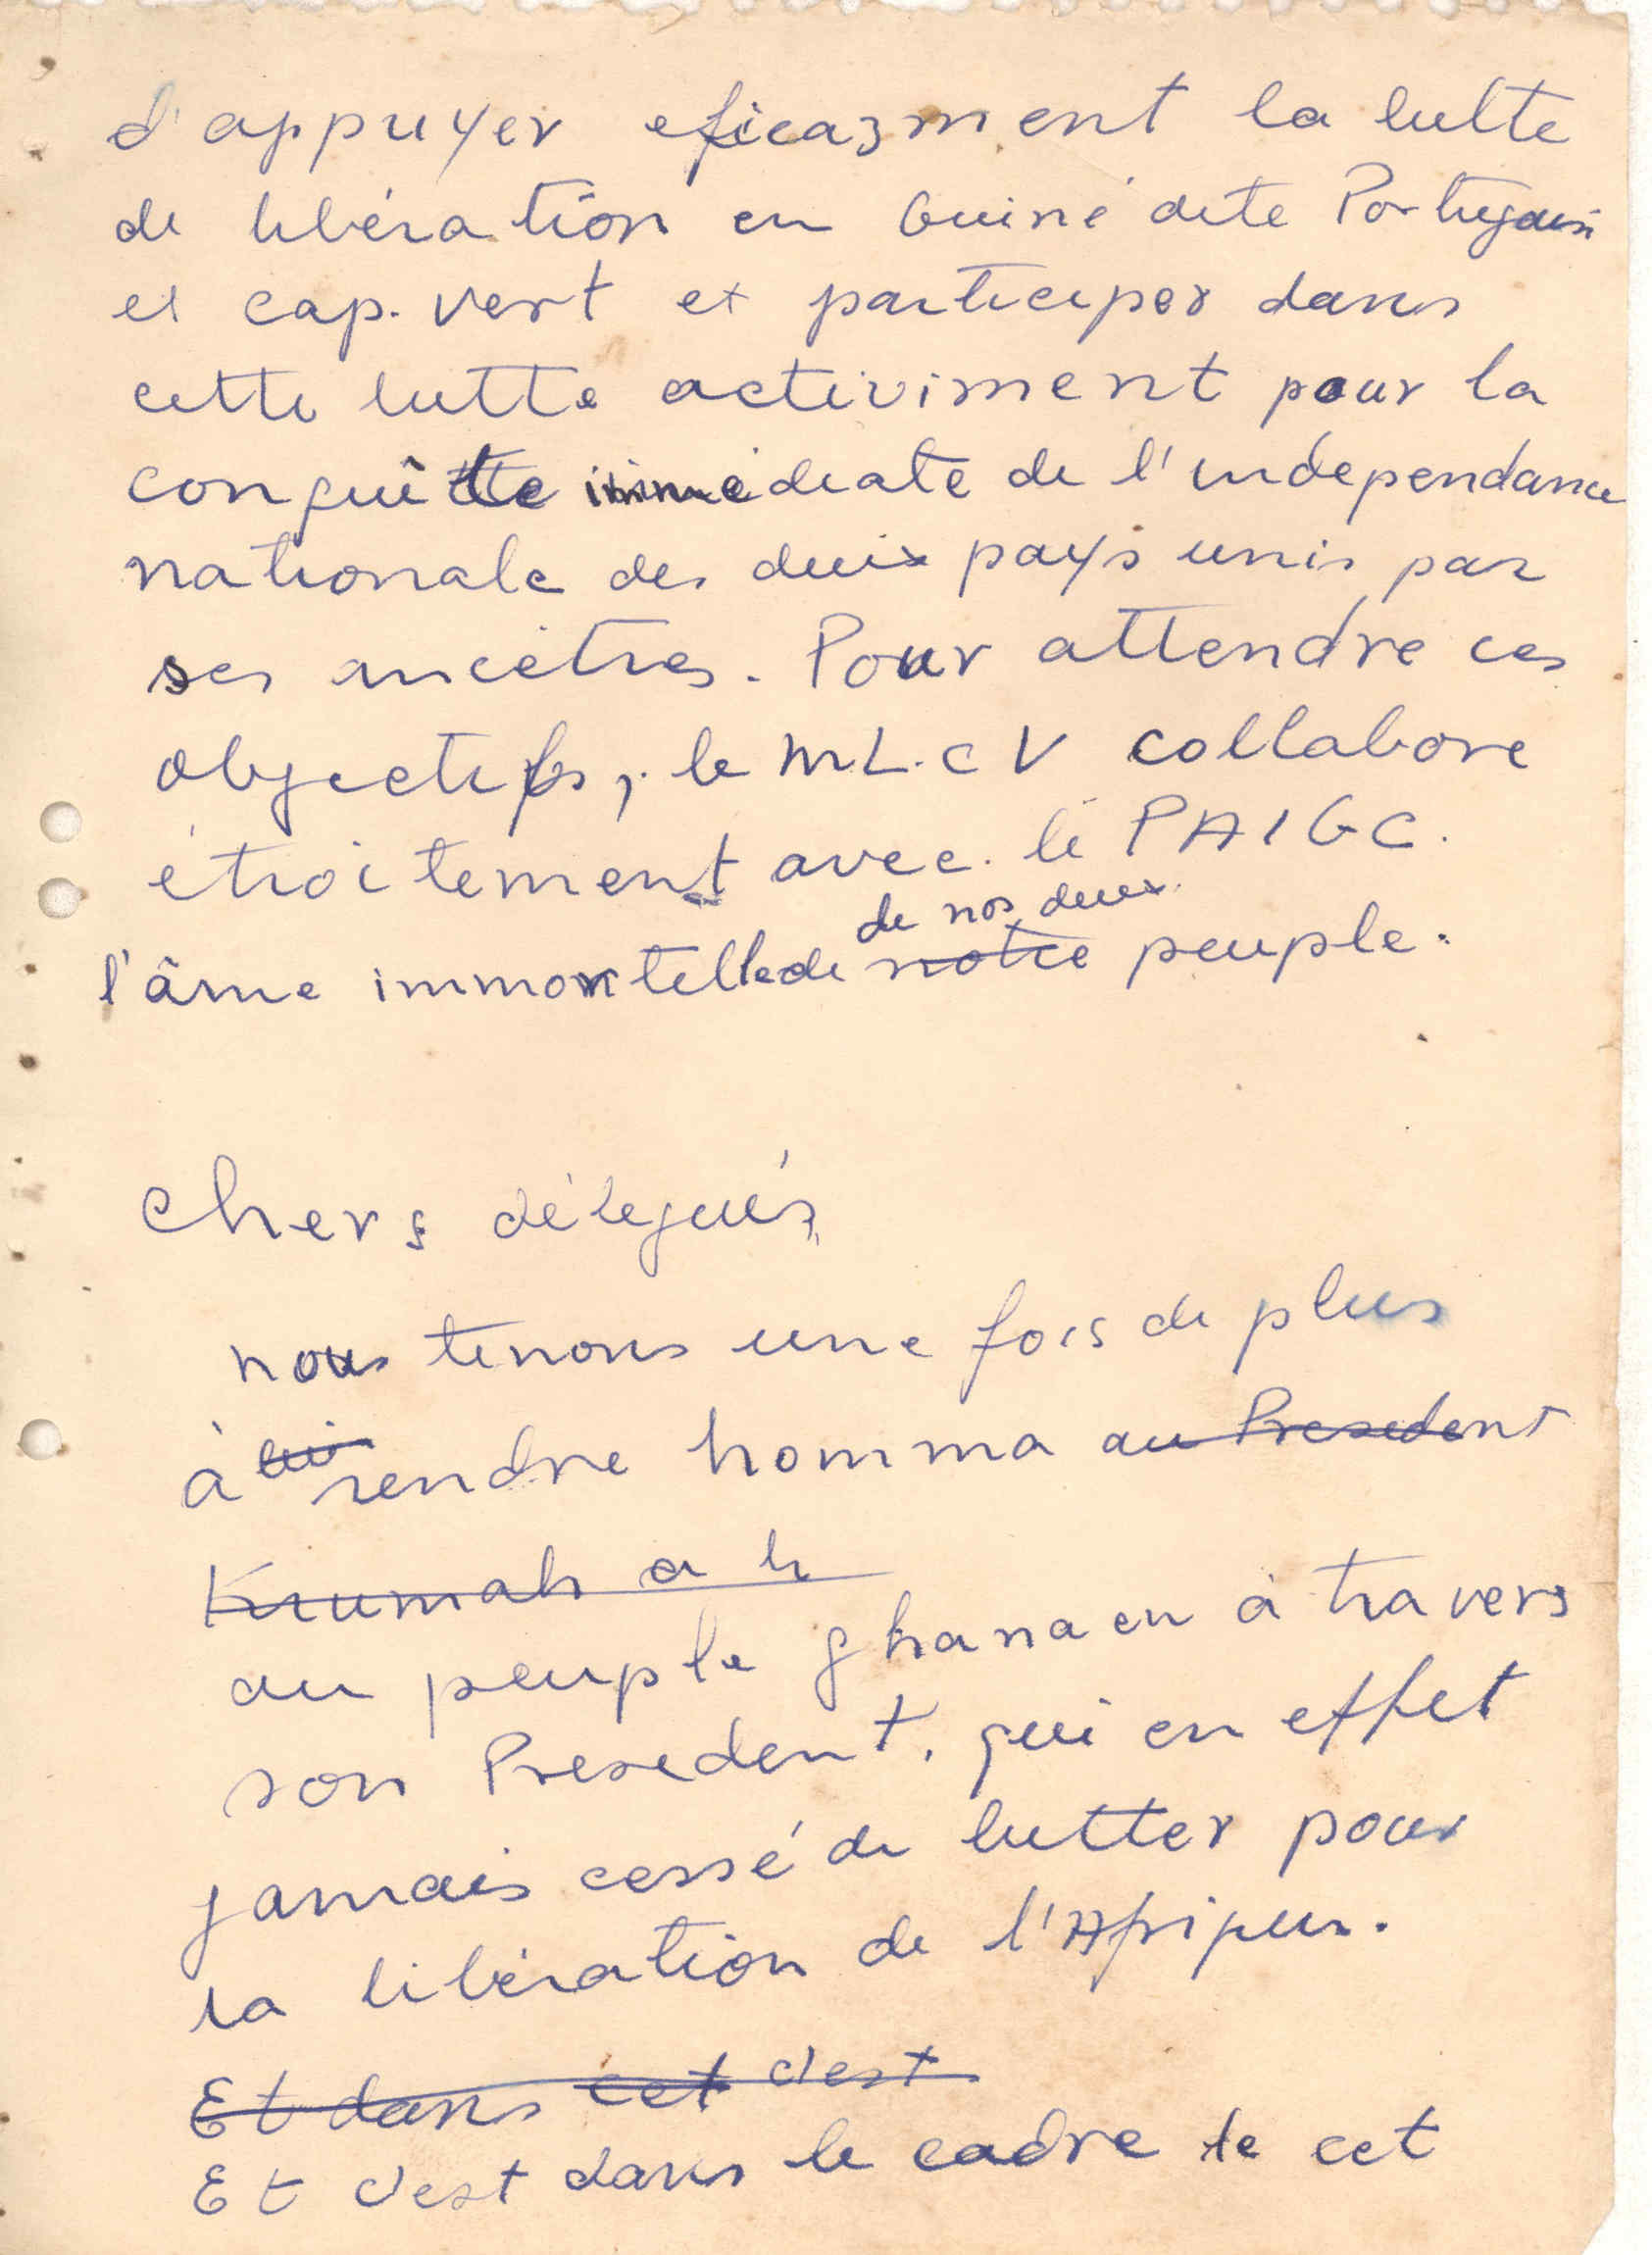 d'appuyer eficazment la lutte
de libération en Guiné dite Portugaise
et cap-vert et participer dans
cette lutte activiment pour la
conquîtte immédiate de l'independance
nationale des deux pays unis par
ses ancêtres. Pour attendre ces
objectifs, le ML.CV collabore
étroitement avec le PAIGC.
de nos deux
l'âme immortelle de notre peuple.
Chers délegués,
nous tenons une fois de plus
à lui rendre homma au President
Krumah a le
au peuple ghanaen à travers
son President, qui en effet
jamais cessé de lutter pour
la libération de l'Afrique.
Et dans cet c'est
Et c'est dans le cadre de cet